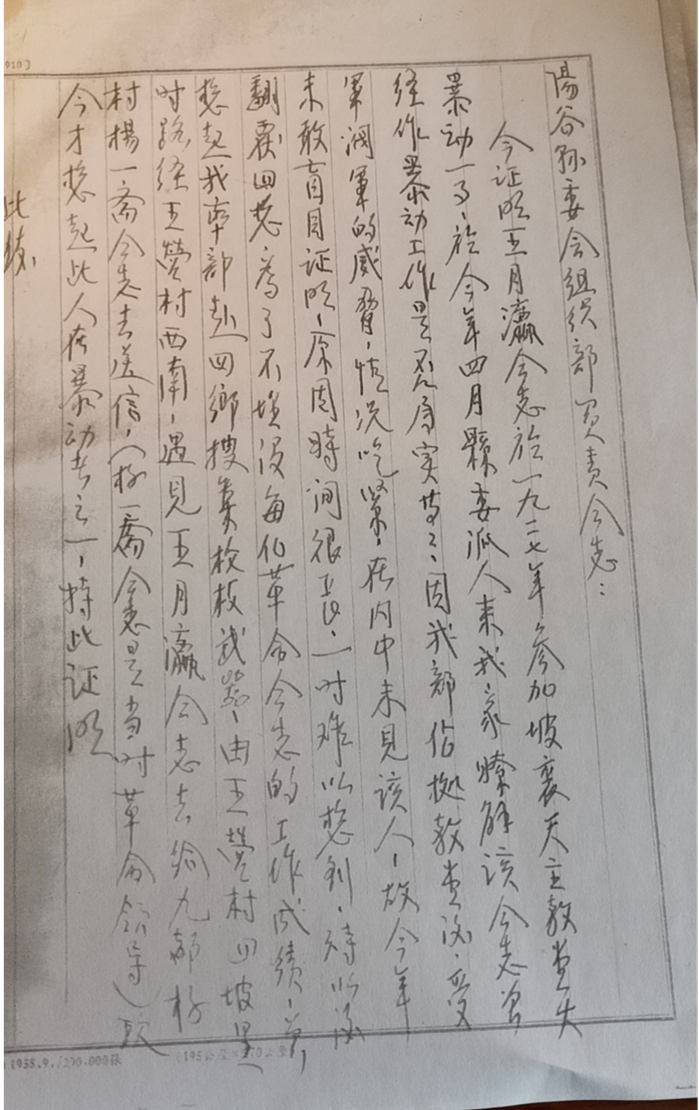 陽谷縣委会组织部负责仝志：
今证明王月瀛仝志於一九二七年参加坡裏天主教堂大
暴动一事，於今年四月縣委派人来我家瞭解该仝志曾
经作暴动工作是否属实等等因我部佔据教堂後，受
军阀军的威脅，情况吃紧，在内中未見该人，故今年
未敢盲目证明，原因時间很長，一时难以想到，特以後
翻覆回想，為了不埋没每位革命仝志的工作成绩，
想起我率部赴四鄉搜集枪枝武器，由王營村四坡里
时路经王營村西南，遇見王月瀛仝志去给九都楊
村楊一斋仝志去送信，（楊一斋仝志是当时革命领导
今才想起此人在暴动者之一，特此证明
此致
1955.9./200.000張